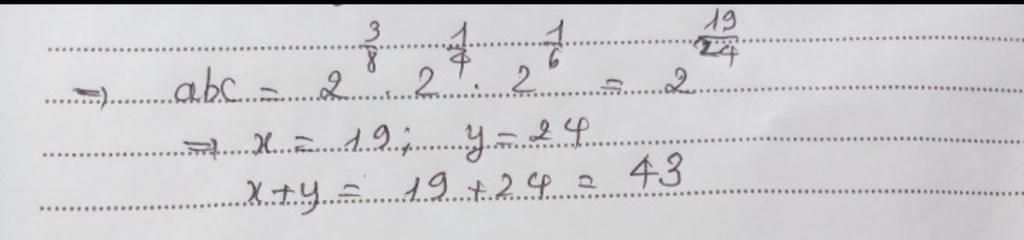 ⇒ abc = 2^(3/8) · 2^(1/4) · 2^(1/6) = 2^(19/24)
⇒ x = 19; y = 24
x + y = 19 + 24 = 43